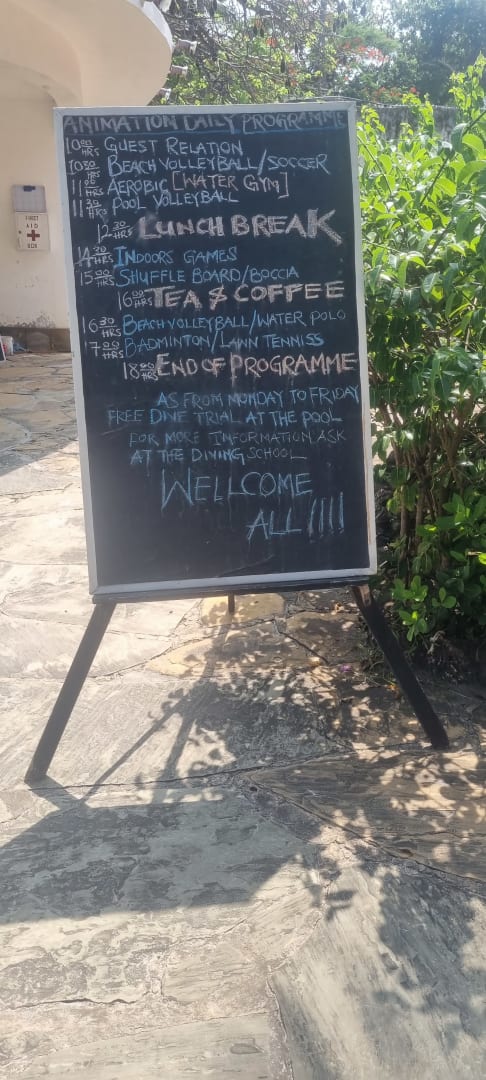 ANIMATION DAILY PROGRAMME
1000 HRS GUEST RELATION
1030 HRS BEACH VOLLEYBALL/SOCCER
1100 HRS AEROBIC [WATER GYM]
1130 HRS POOL VOLLEYBALL
1230 HRS LUNCH BREAK
HRS INDOORS GAMES
1500 HRS SHUFFLE BOARD/BOCCIA
1600 HRS TEA & COFFEE
1630 HRS BEACH VOLLEYBALL/WATER POLO
1700 HRS BADMINTON/LAWN TENNISS
1800 HRS END OF PROGRAMME
AS FROM MONDAY TO FRIDAY
FREE DIVE TRIAL AT THE POOL
FOR MORE INFORMATION ASK
AT THE DIVING SCHOOL
WELLCOME
ALL!!!!
FIRST
AID
BOX